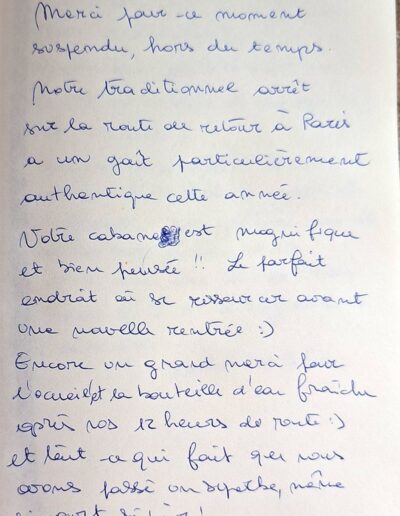 Merci pour ce moment
suspendu, hors du temps.
Notre traditionnel arrêt
sur la route de retour à Paris
a un goût particulièrement
authentique cette année.
Votre cabane est magnifique
et bien pensée !! Le parfait
endroit où se ressourcer avant
une nouvelle rentrée :)
Encore un grand merci pour
l'accueil et la bouteille d'eau fraîche
après nos 12 heures de route :)
et tout ce qui fait que nous
avons passé un superbe, même
si court séjour !